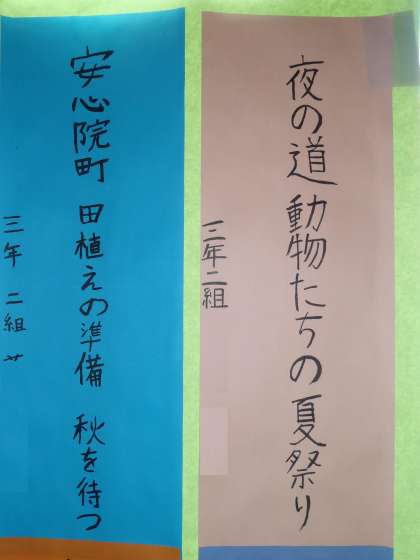 夜の道 動物たちの夏祭り
三年二組
安心院町 田植えの準備 秋を待つ
三年 二組